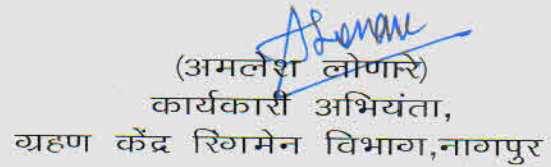 (अमलेश लोणारे)
कार्यकारी अभियंता,
ग्रहण केंद्र रिंगमेन विभाग,नागपुर